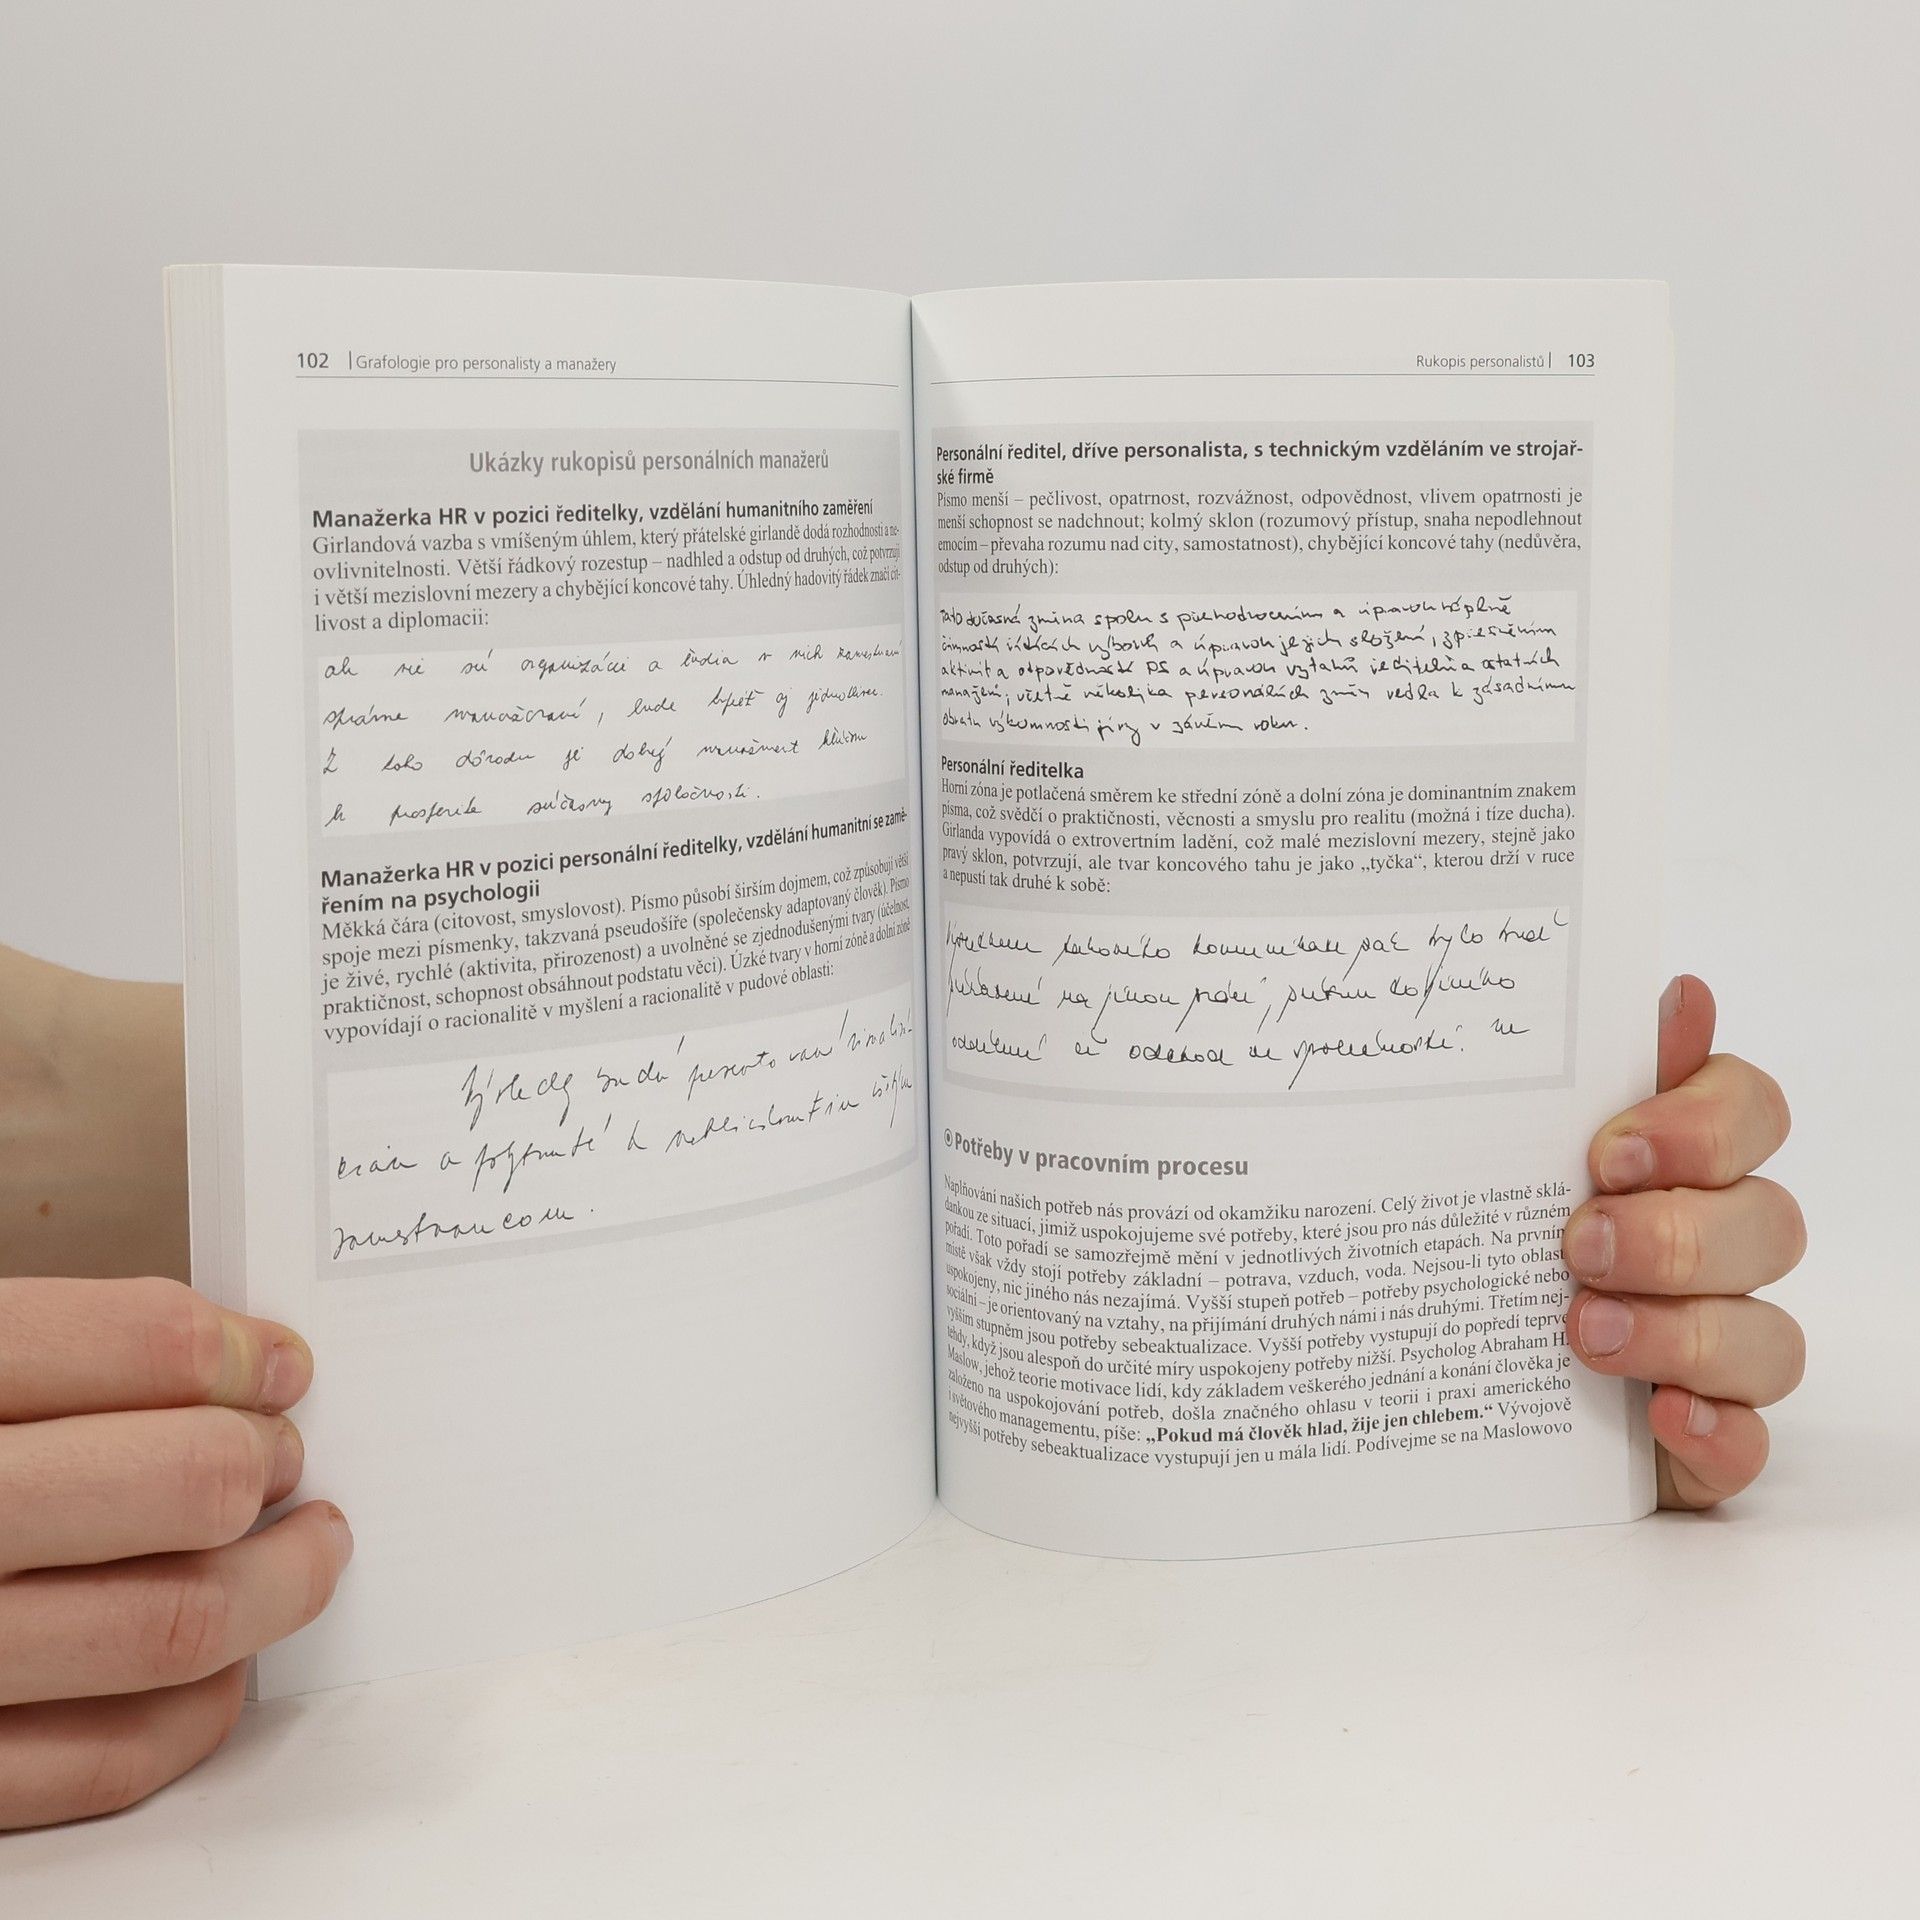 102 | Grafologie pro personalisty a manažery
Ukázky rukopisů personálních manažerů
Manažerka HR v pozici ředitelky, vzdělání humanitního zaměření
Girlandová vazba s vmíšeným úhlem, který přátelské girlandě dodá rozhodnosti a ne-
ovlivnitelnosti. Větší řádkový rozestup – nadhled a odstup od druhých, což potvrzují
i větší mezislovní mezery a chybějící koncové tahy. Úhledný hadovitý řádek značí cit-
livost a diplomacii:
ak nie sú organizácie a ľudia v nich
správne , bude aj
Z toho dôvodu je dobrý
k prosperite súčasnej spoločnosti.
Manažerka HR v pozici personální ředitelky, vzdělání humanitní se zamě-
řením na psychologii
Měkká čára (citovost, smyslovost). Písmo působí širším dojmem, což způsobují větší
spoje mezi písmenky, takzvaná pseudošíře (společensky adaptovaný člověk). Písmo
je živé, rychlé (aktivita, přirozenost) a uvolněné se zjednodušenými tvary (účelnost,
praktičnost, schopnost obsáhnout podstatu věcí). Úzké tvary v horní zóně a dolní zóně
vypovídají o racionalitě v myšlení a racionalitě v pudové oblasti:
Výsledky budú
a k
zamestnancom.
Rukopis personalistů | 103
Personální ředitel, dříve personalista, s technickým vzděláním ve strojař-
ské firmě
Písmo menší – pečlivost, opatrnost, rozvážnost, odpovědnost, vlivem opatrnosti je
menší schopnost se nadchnout; kolmý sklon (rozumový přístup, snaha nepodlehnout
emocím – převaha rozumu nad city, samostatnost), chybějící koncové tahy (nedůvěra,
odstup od druhých):
Tato dočasná změna spolu s přehodnocením a úpravou náplně
činností řídících výborů a úpravou jejich složení, zpřesněním
aktivit a odpovědností PS a úpravou vztahů ředitelů a ostatních
manažerů, včetně několika personálních změn vedla k zásadnímu
obratu výkonnosti firmy v závěru roku.
Personální ředitelka
Horní zóna je potlačená směrem ke střední zóně a dolní zóna je dominantním znakem
písma, což svědčí o praktičnosti, věcnosti a smyslu pro realitu (možná i tíze ducha).
Girlanda vypovídá o extrovertním ladění, což malé mezislovní mezery, stejně jako
pravý sklon, potvrzují, ale tvar koncového tahu je jako „tyčka“, kterou drží v ruce
a nepustí tak druhé k sobě:
Výsledkem takového komunikace pak bylo buď
přeřazení na jinou práci, přesun do jiného
oddělení či odchod ze společnosti. Ze
Potřeby v pracovním procesu
Naplňování našich potřeb nás provází od okamžiku narození. Celý život je vlastně sklá-
dankou ze situací, jimiž uspokojujeme své potřeby, které jsou pro nás důležité v různém
pořadí. Toto pořadí se samozřejmě mění v jednotlivých životních etapách. Na prvním
místě však vždy stojí potřeby základní – potrava, vzduch, voda. Nejsou-li tyto oblasti
uspokojeny, nic jiného nás nezajímá. Vyšší stupeň potřeb – potřeby psychologické nebo
sociální – je orientovaný na vztahy, na přijímání druhých námi i nás druhými. Třetím nej-
vyšším stupněm jsou potřeby sebeaktualizace. Vyšší potřeby vystupují do popředí teprve
tehdy, když jsou alespoň do určité míry uspokojeny potřeby nižší. Psycholog Abraham H.
Maslow, jehož teorie motivace lidí, kdy základem veškerého jednání a konání člověka je
založeno na uspokojování potřeb, došla značného ohlasu v teorii i praxi amerického
i světového managementu, píše: „Pokud má člověk hlad, žije jen chlebem.“ Vývojově
nejvyšší potřeby sebeaktualizace vystupují jen u mála lidí. Podívejme se na Maslowovo